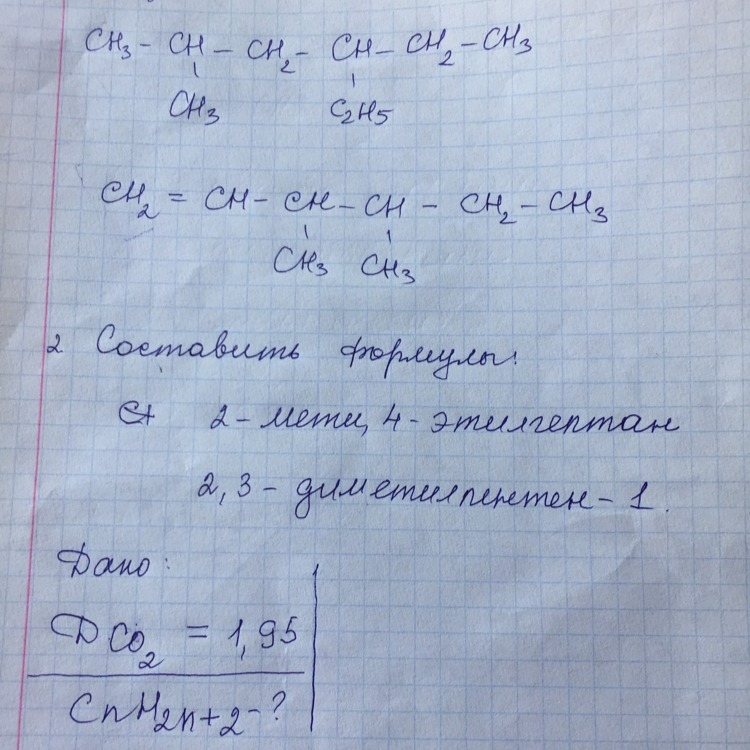 CH3 - CH - CH2 - CH - CH2 - CH3
CH3 C2H5
CH2 = CH - CH - CH - CH2 - CH3
CH3 CH3
2 Составить формулы:
2-метил, 4-этилгептан
2,3-диметилпентен-1.
Дано:
DCO2 = 1,95
CnH2n+2-?